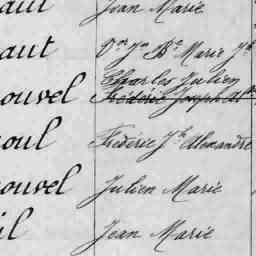 aut Jean Marie
aut Marie
Charles Julien
ouvel Frédéric Joseph
oul Frédéric Jh Alexandre
ouvel Julien Marie
il Jean Marie